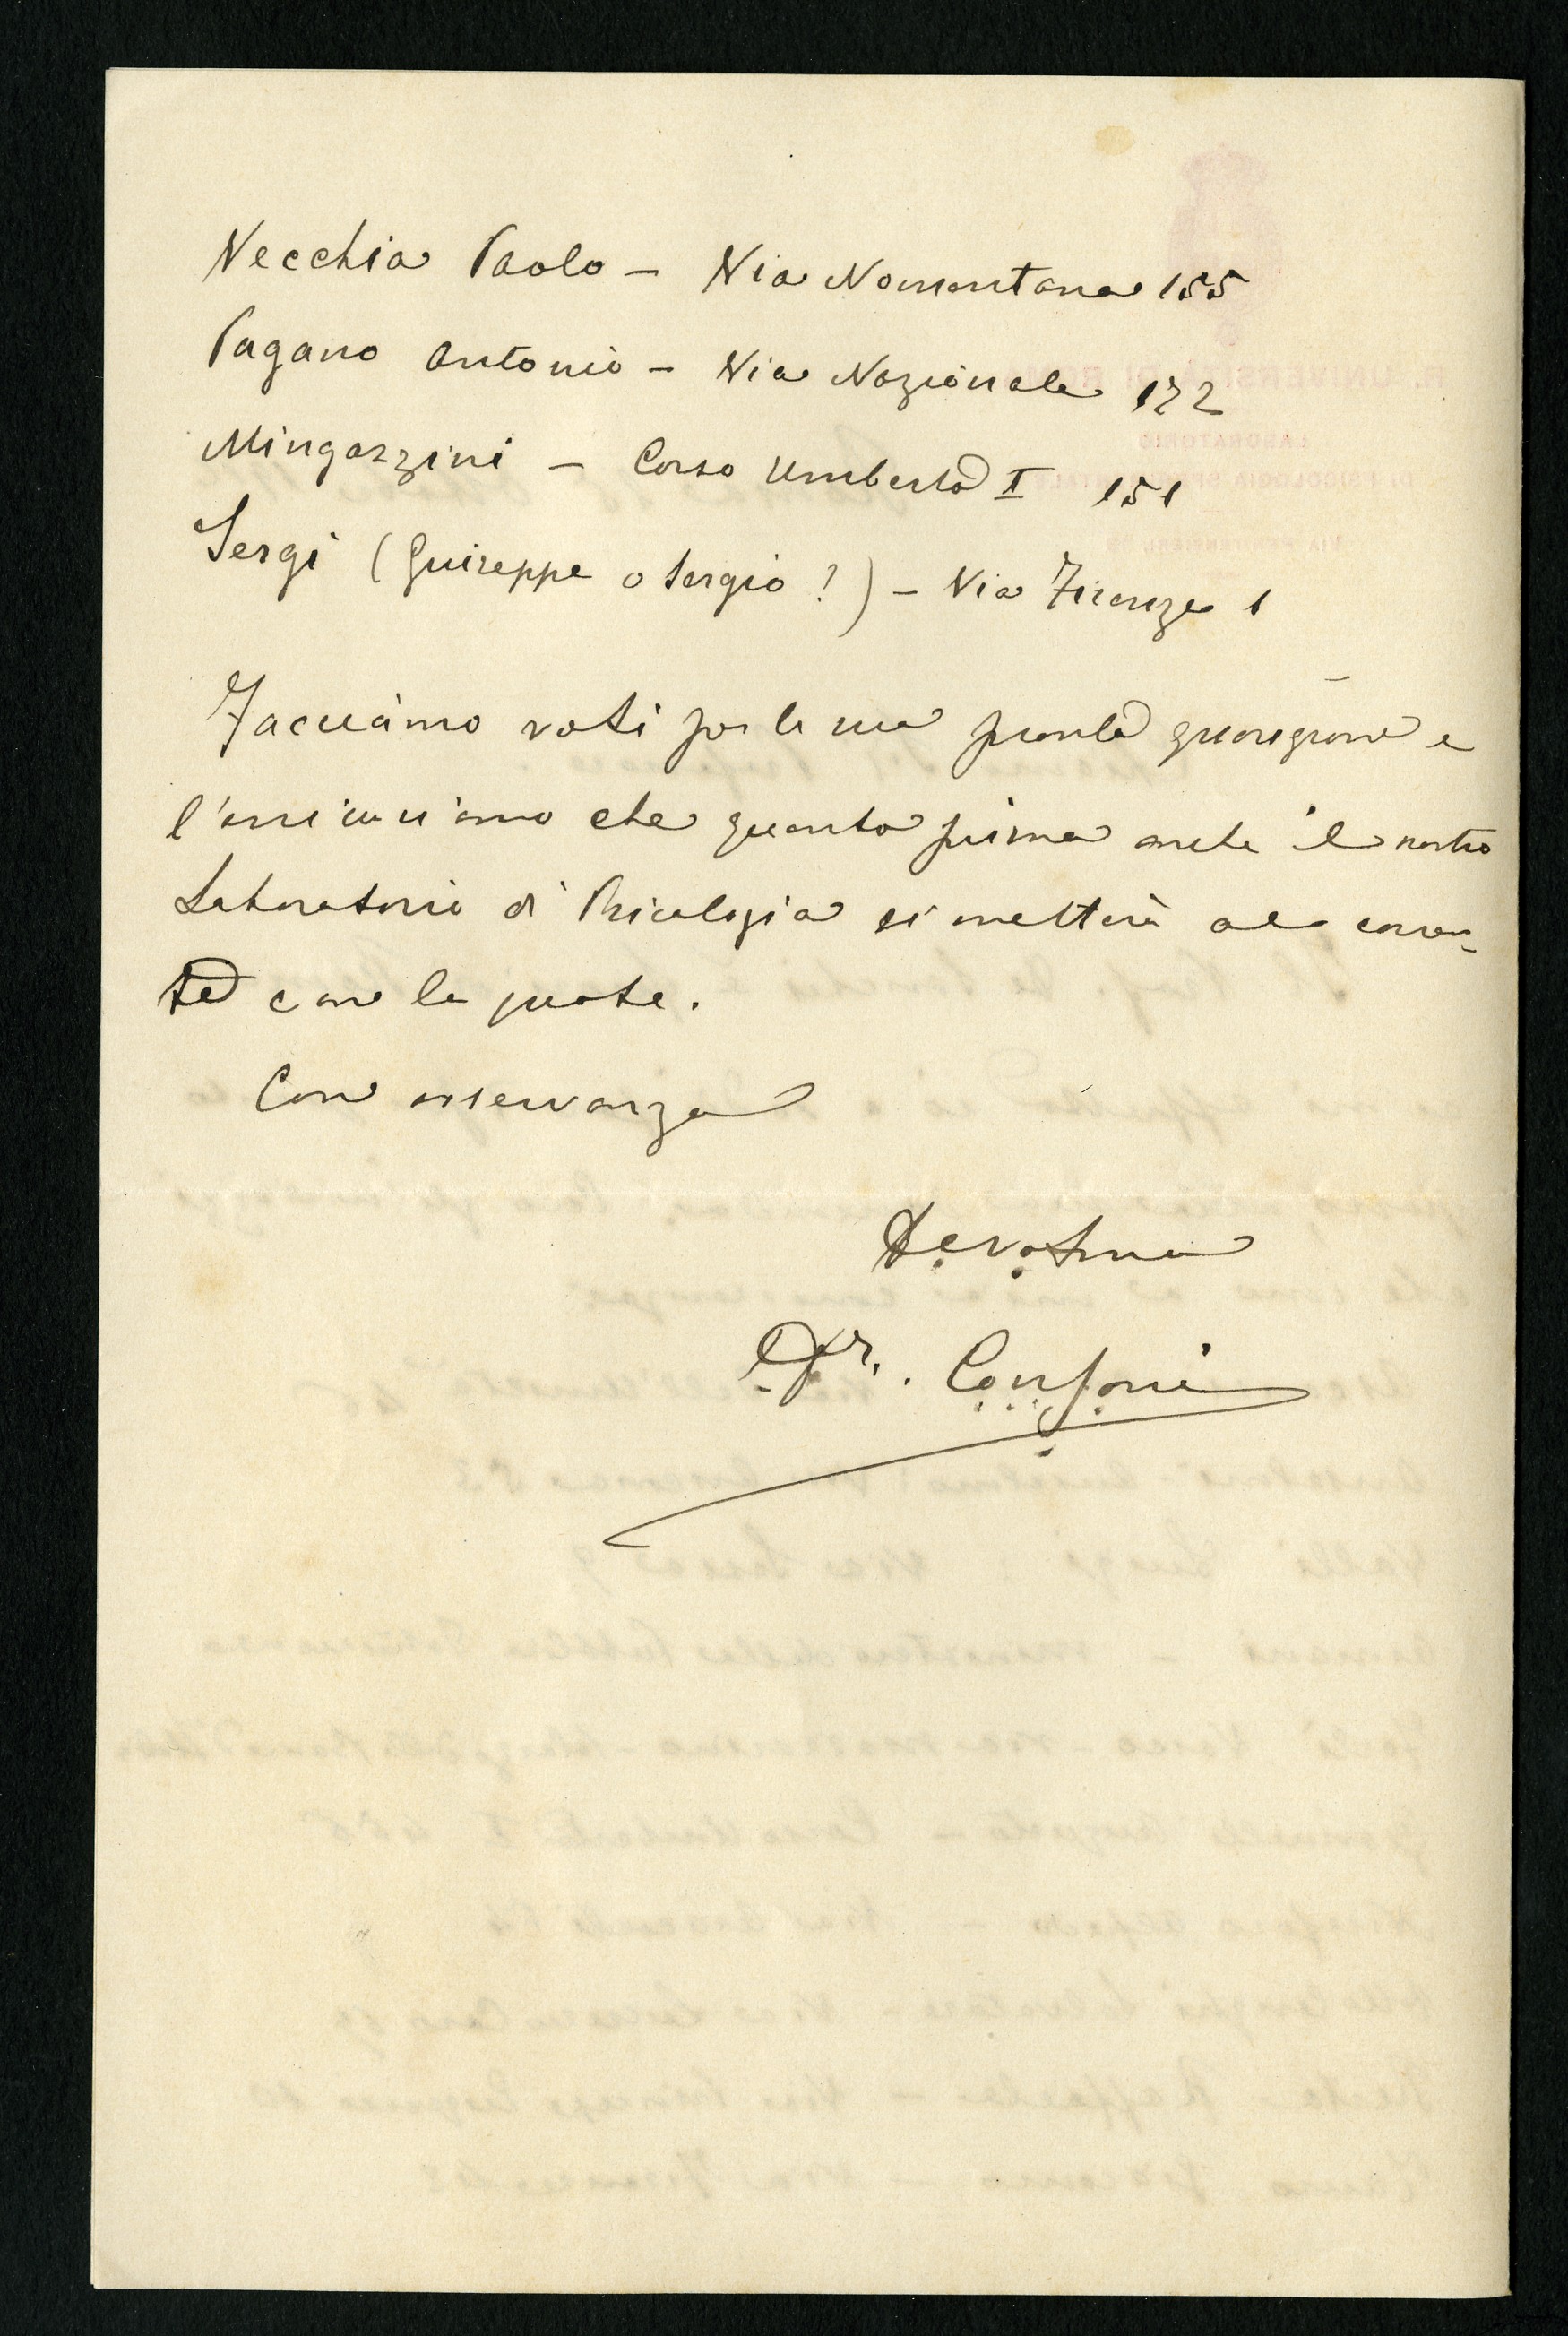 Vecchia Paolo – Via Nomentana 155
Pagano Antonio – Via Nazionale 172
Mingazzini – Corso Umberto I 151
Sergi (Guiseppe o Sergio?) – Via Firenze 1
Facciamo voti per la sua pronta guarigione e
l'assicuriamo che quanto prima anche il nostro
Laboratorio di Psicologia si metterà al corren-
te con le quote.
Con osservanza
Devotma
Dr. Consoni